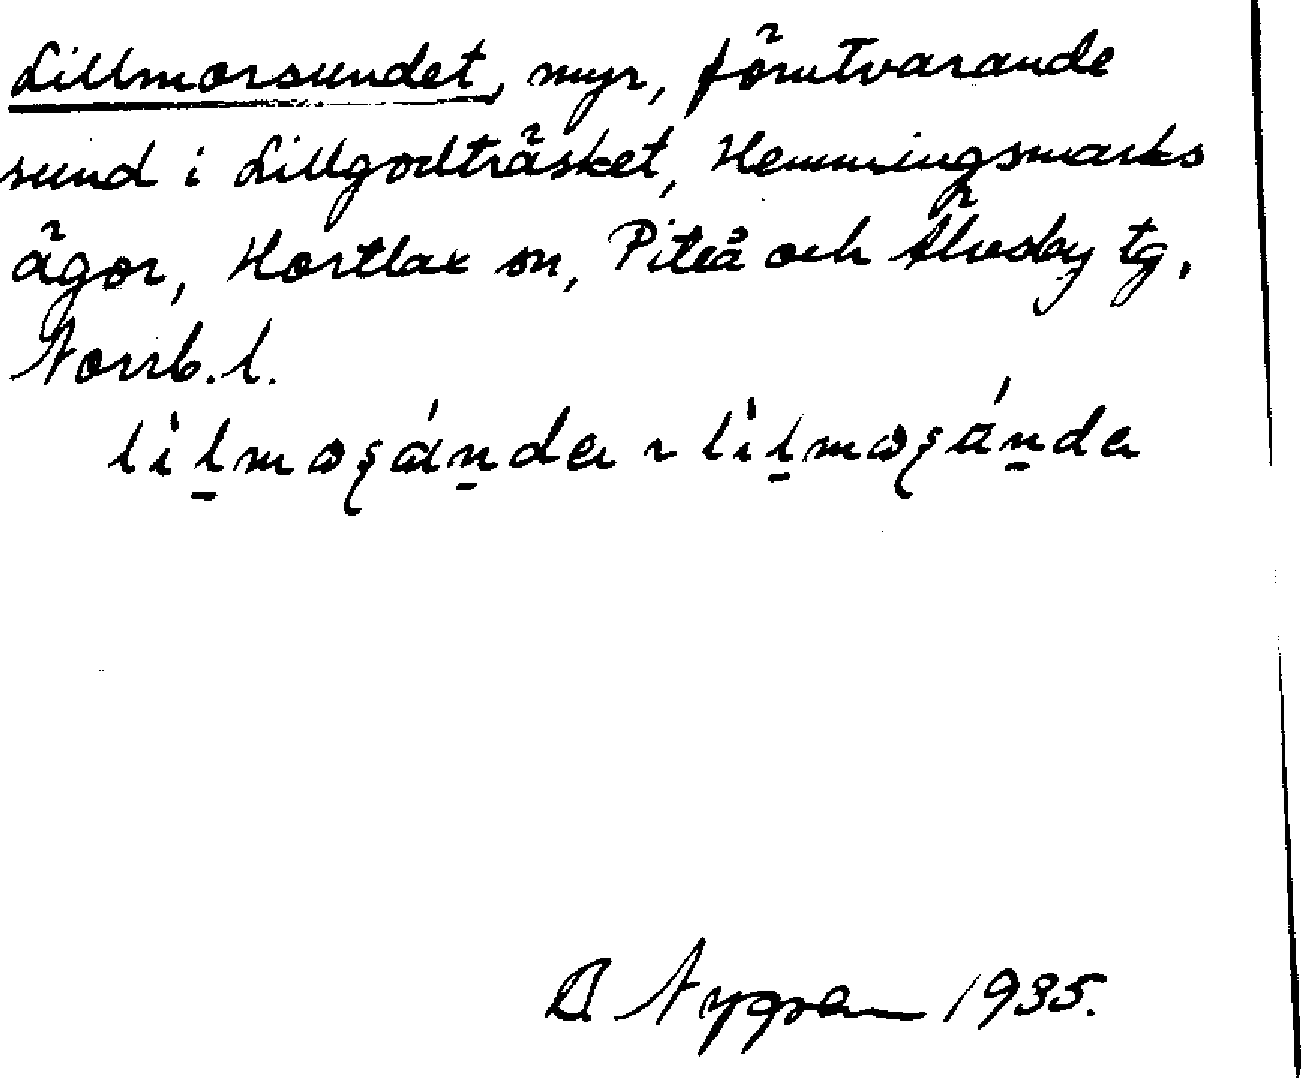 Lillmorsundet, myr, förutvarande
sund i Lillgodträsket, Hemmingsmarks
ägor, Hortlax sn, Piteå och Älvsby tg,
Norrb. l.
Nygren 1935.